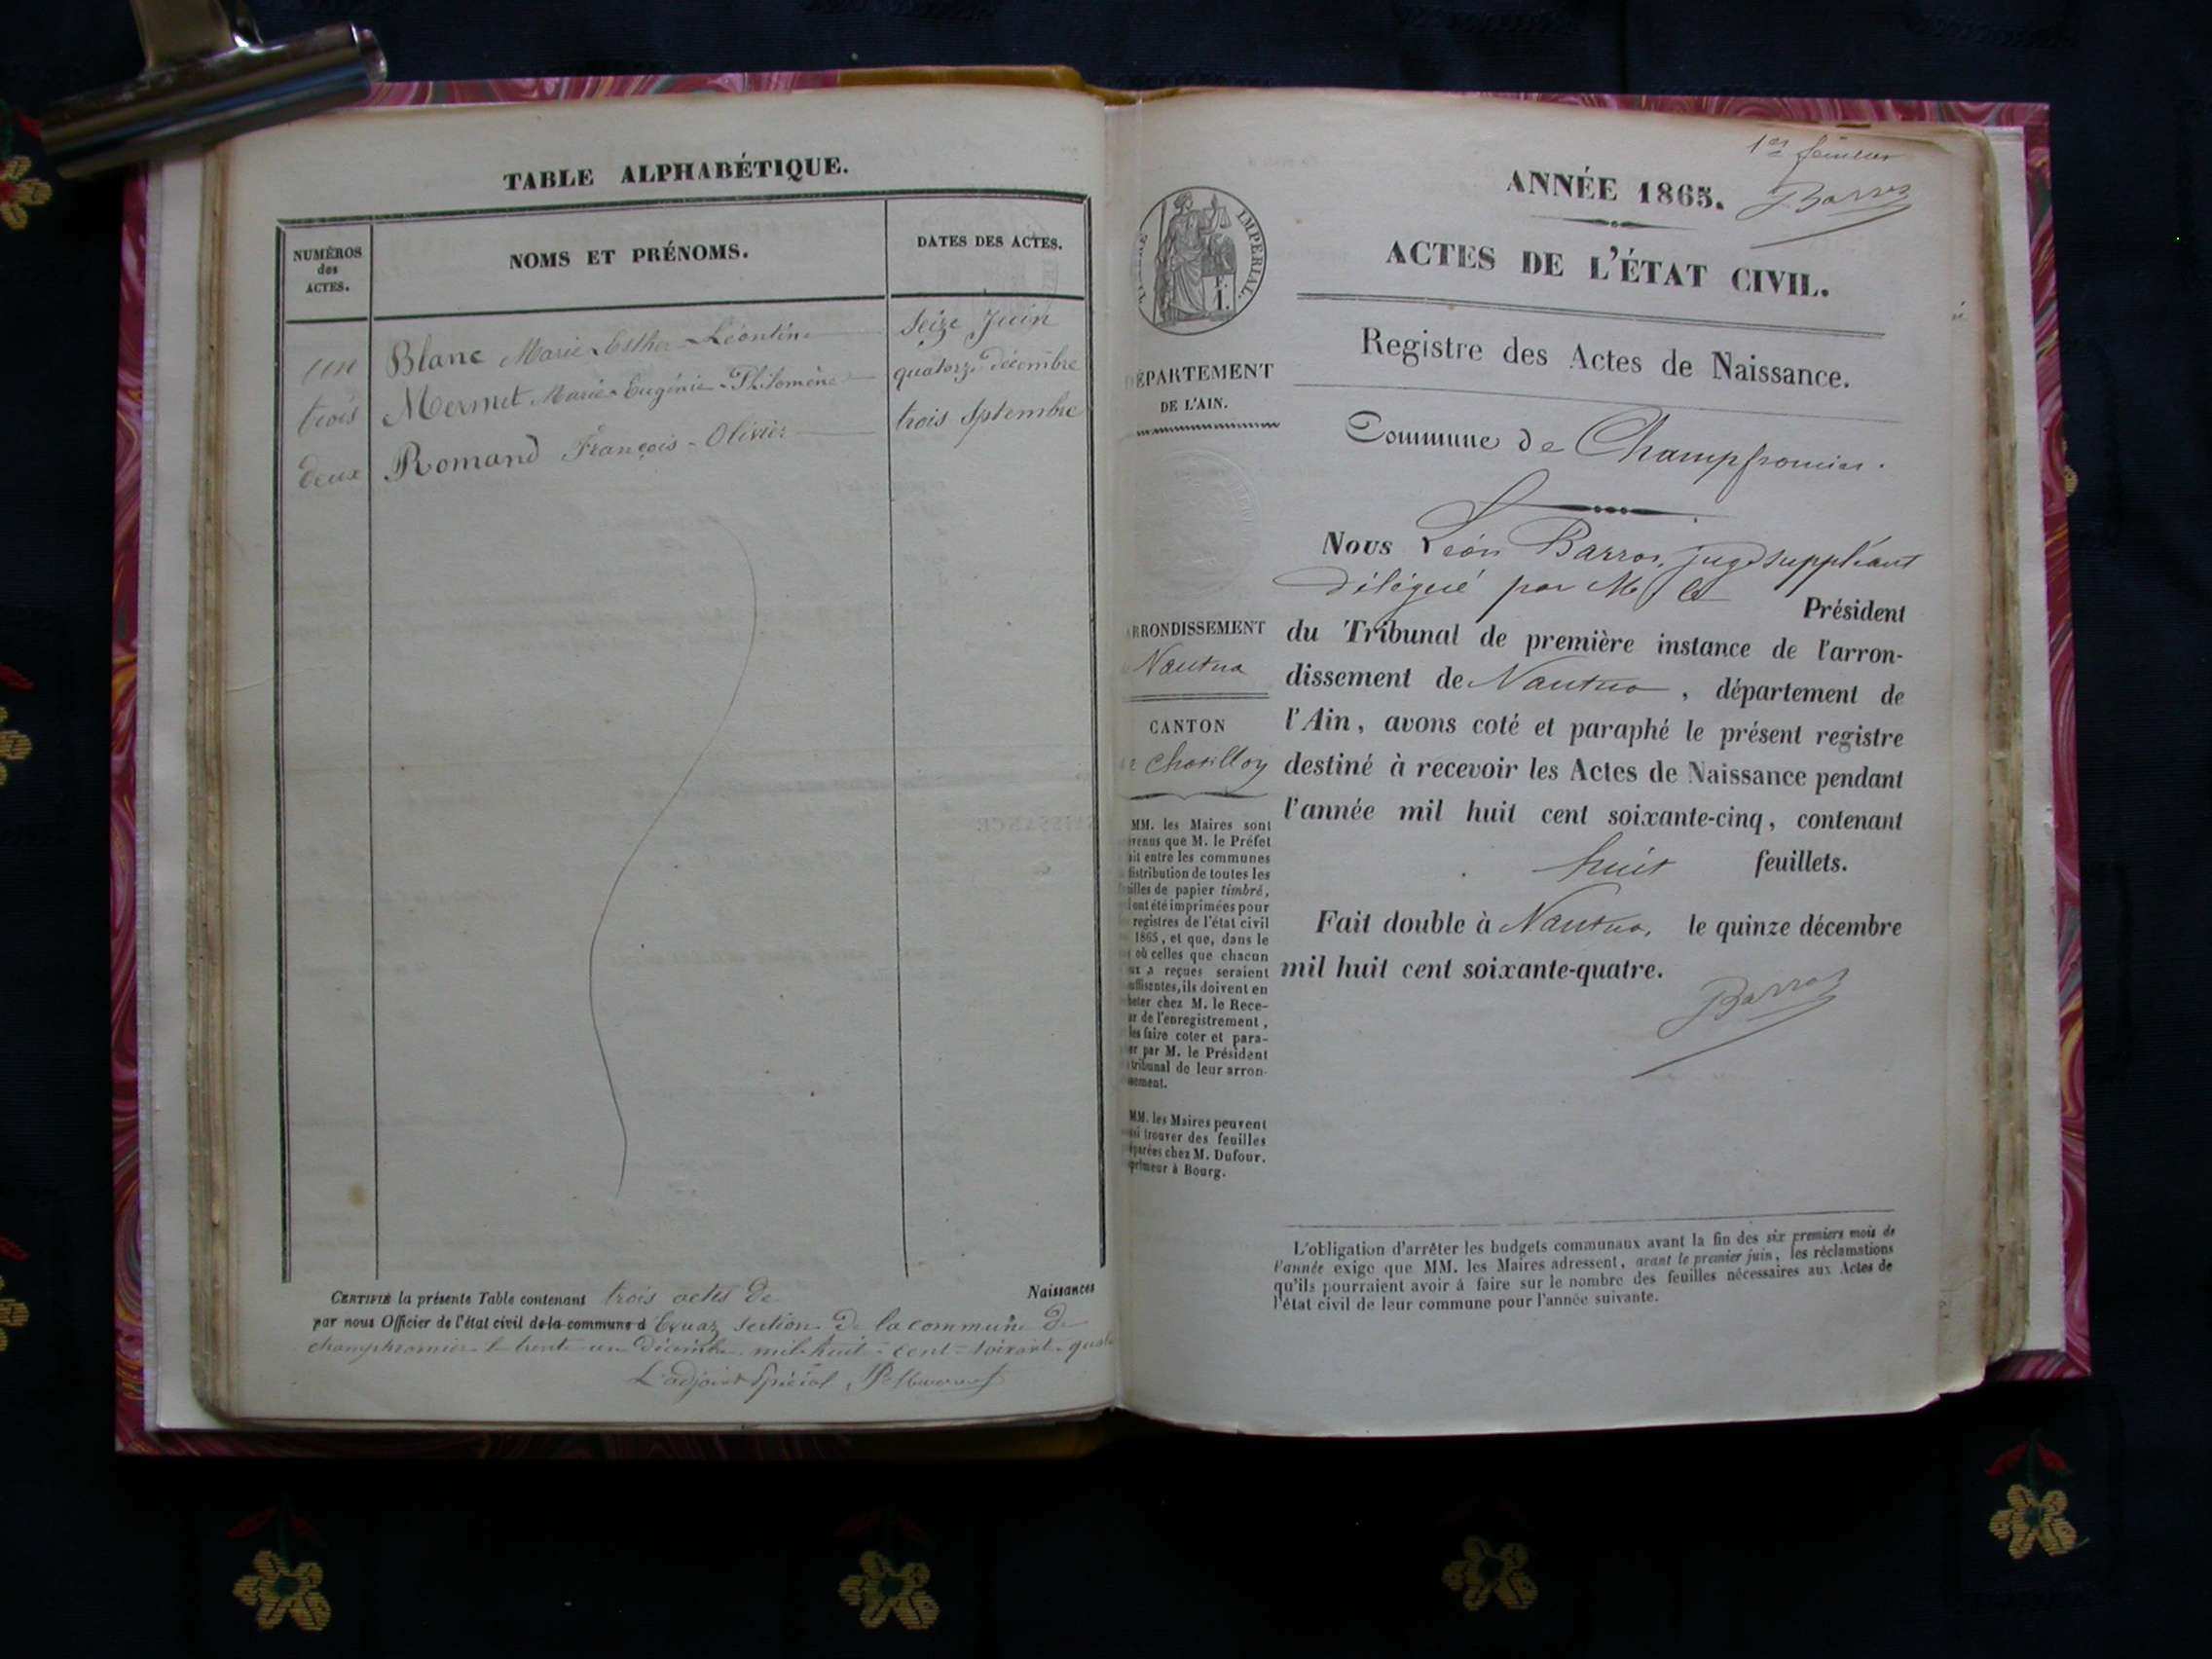 TABLE ALPHABÉTIQUE.
NUMÉROS
des
ACTES.
NOMS ET PRÉNOMS.
DATES DES ACTES.
un Blanc Marie-Esther-Léontine seize Juin
trois Mermet Marie-Eugénie-Philomène quatorze décembre
deux Romand François-Olivier trois Septembre
CERTIFIÉ la présente Table contenant trois actes de Naissances
par nous Officier de l'état civil de la commune d Evuaz section de la commune de
champfromier le trente un décembre mil-huit-cent-soixante-quatre
L'adjoint Spécial
1er feuillet
Barros
ANNÉE 1865.
ACTES DE L'ÉTAT CIVIL.
TIMBRE IMPÉRIAL.
Registre des Actes de Naissance.
DÉPARTEMENT
DE L'AIN.
Commune de Champfromier.
Nous Léon Barros, juge suppléant
délégué par M. le Président
ARRONDISSEMENT
Nantua
du Tribunal de première instance de l'arron-
dissement de Nantua, département de
l'Ain, avons coté et paraphé le présent registre
destiné à recevoir les Actes de Naissance pendant
l'année mil huit cent soixante-cinq, contenant
huit feuillets.
Fait double à Nantua, le quinze décembre
mil huit cent soixante-quatre.
Barros
CANTON
de Chatillon
MM. les Maires sont
venus que M. le Préfet
ait entre les communes
distribution de toutes les
feuilles de papier timbré,
ont été imprimées pour
registres de l'état civil
1865, et que, dans le
où celles que chacun
eux a reçues seraient
uffisantes, ils doivent en
heter chez M. le Rece-
ur de l'enregistrement,
les faire coter et para-
er par M. le Président
tribunal de leur arron-
sement.
MM. les Maires peuvent
ssi trouver des feuilles
éparées chez M. Dufour,
primeur à Bourg.
L'obligation d'arrêter les budgets communaux avant la fin des six premiers mois de
l'année exige que MM. les Maires adressent, avant le premier juin, les réclamations
qu'ils pourraient avoir à faire sur le nombre des feuilles nécessaires aux Actes de
l'état civil de leur commune pour l'année suivante.